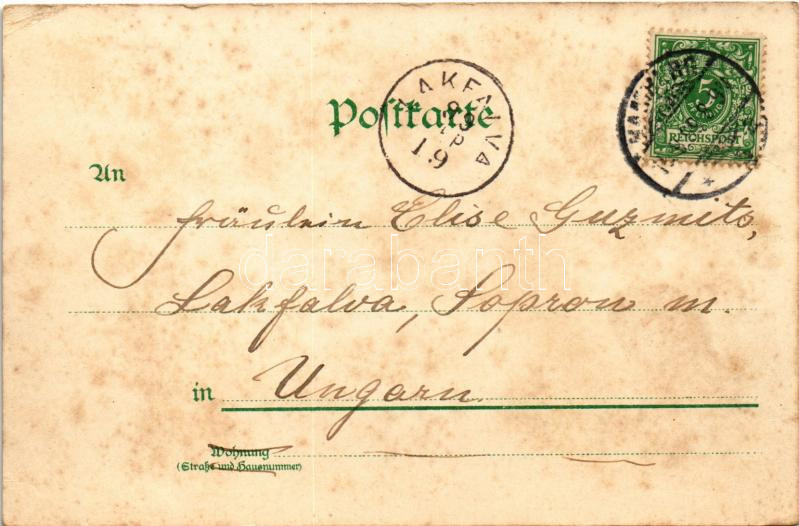 LAKFALVA
99
19
5
REICHSPOST
Postkarte
HAMBURG
1
*
An
Fräulein Elise Guzmits,
darabanth
Lakfalva, Sopron m.
in Ungarn.
Wohnung
(Straße und Hausnummer)